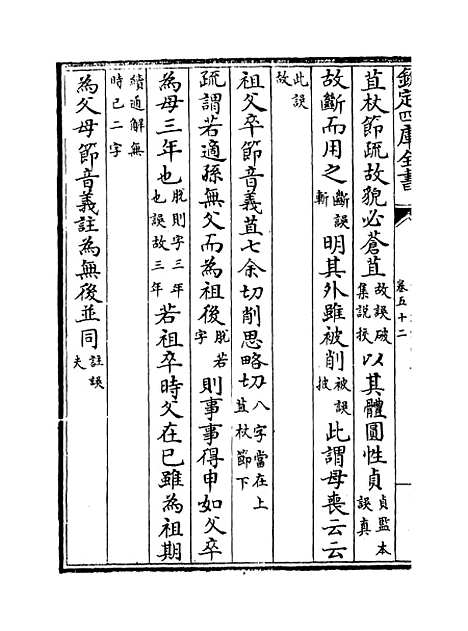 欽定四庫全書
卷五十二
苴杖節疏故貌必蒼苴故誤破集說挍以其體圓性貞貞監本誤真
故斷而用之斷誤斬明其外雖被削被誤披此謂母喪云云
此誤故
祖父卒節音義苴七余切削思略切八字當在上苴杖節下
疏謂若適孫無父而為祖後脫若字則事事得申如父卒
為母三年也脫則字三年也誤故三年若祖卒時父在已雖為祖期
續通解無時已二字
為父母節音義註為無後並同註誤夫